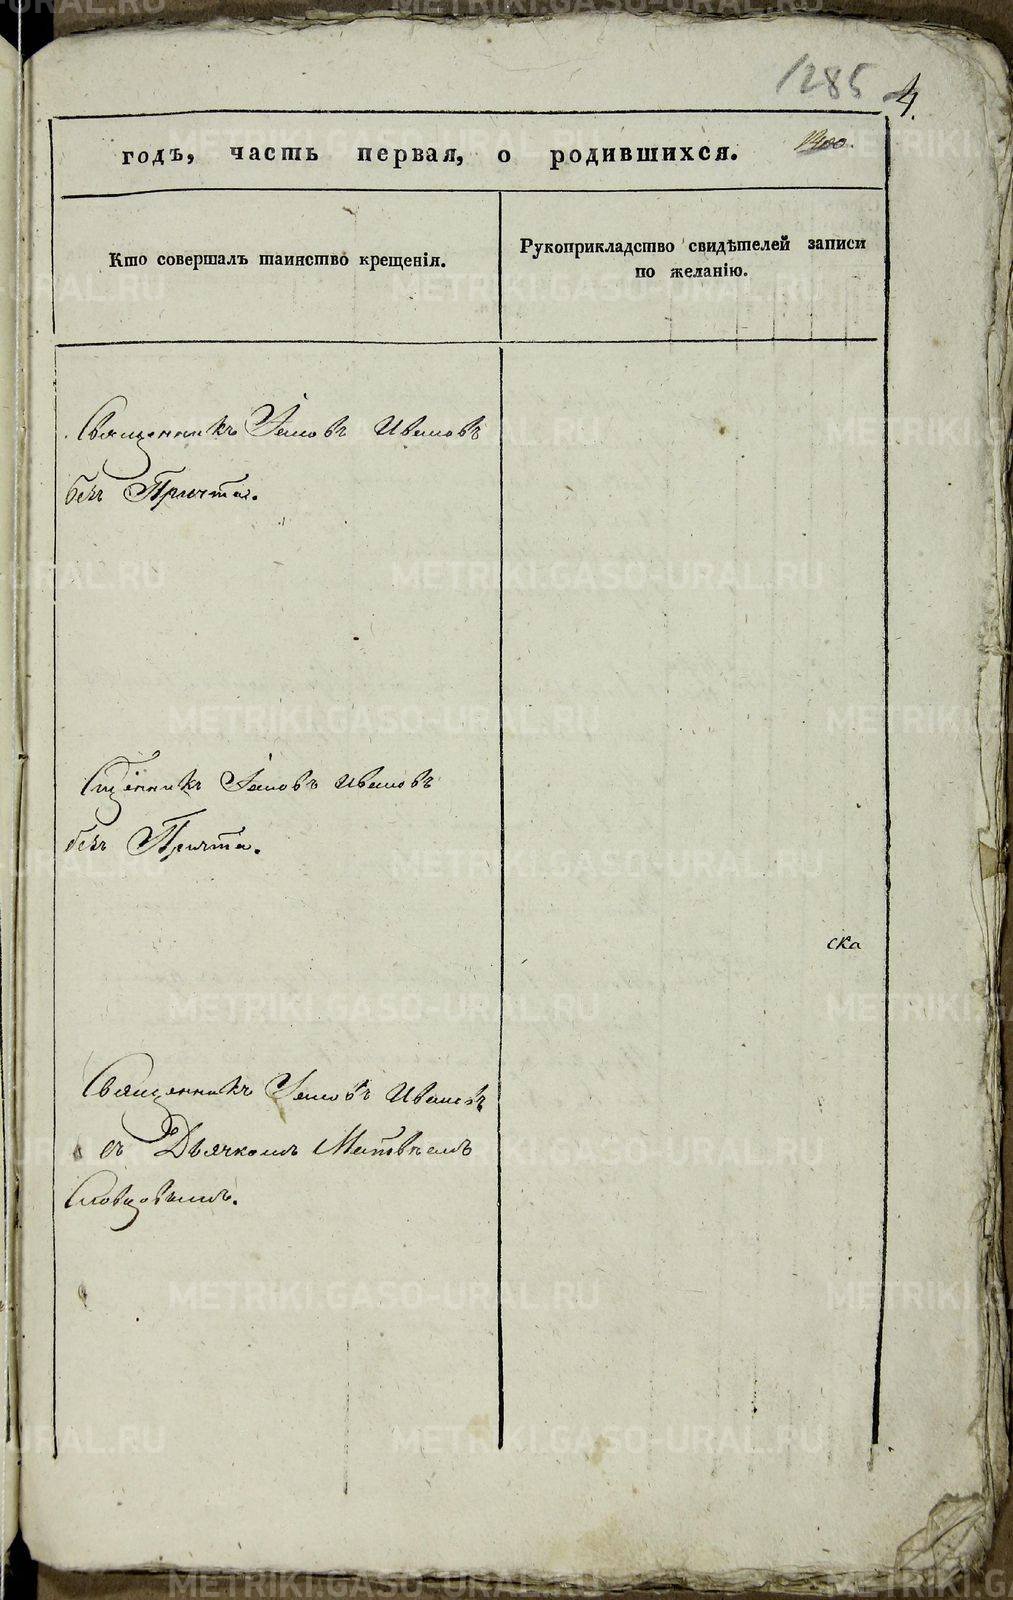 1285
4.
годъ, часть первая, о родившихся.
Кто совершалъ таинство крещенія.
Рукоприкладство свидѣтелей записи
по желанію.
Священникъ Іаковъ Ивановъ
безъ Причта.
Сщ҃енникъ Іаковъ Ивановъ
безъ Причта.
ска
Священникъ Іаковъ Ивановъ
съ Дьячкомъ Матвѣемъ
Словцовымъ.
METRIKI.GASO-URAL.RU